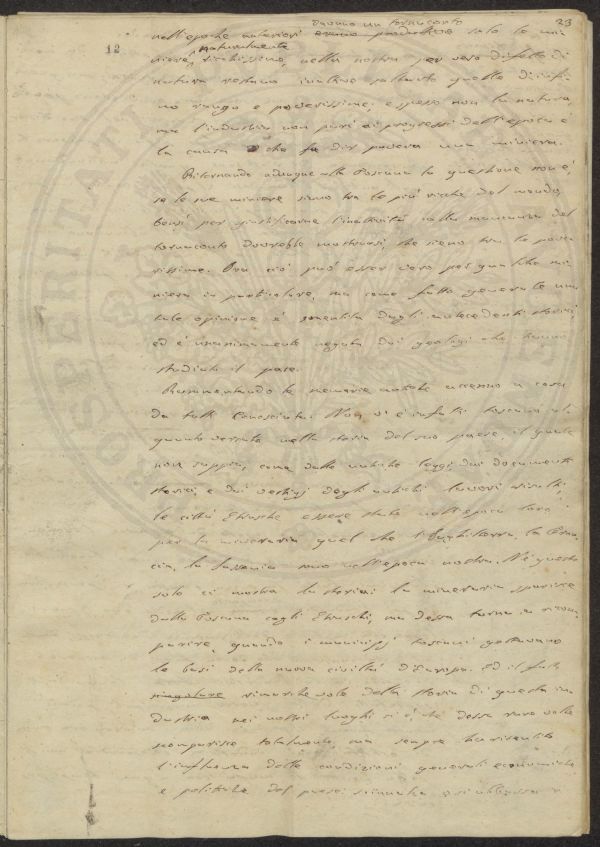 23
12
davano un tornaconto
nell'epoche anteriori erano produttive solo le mi
naturalmente
niere, ricchissime, nella nostra per vero difetto di
natura restano inattive soltanto quelle di infi
mo rango e poverissime; e spesso non la natura,
ma l'industria non pari ai progressi dell'epoca è
la causa che fa dir povera una miniera.
Ritornando adunque alla Toscana la questione non è,
se le sue miniere siano tra le più ricche del mondo,
bensì per giustificarne l'inattività colla mancanza del
tornaconto dovrebbe mostrarsi, che sieno tra le pove
rissime. Ora ciò può esser vero per qualche mi
niera in particolare, ma come fatto generale una
tale opinione è smentita dagli antecedenti storici,
ed è unanimamente negata dai geologi che hanno
studiato il paese.
Rammentando le memorie antiche accenno a cosa
da tutti conosciuta. Non vi è infatti toscano al
quanto versato nella storia del suo paese, il quale
non sappia, come dalle antiche leggi, dai documenti
storici, e dai vestigj degli antichi lavori risulti,
le città Etrusche essere state nell'epoca loro
per la mineraria quel che l'Inghilterra, la
la Sassonia sono nell'epoca nostra. Nè questo
solo ci mostra la storia: la mineraria sparisce
dalla Toscana cogli Etruschi, ma dessa torna a ricom
parire, quando i municipj toscani gettavano
le basi della nuova civiltà d'Europa. Ed il fatto
singolare rimarchevole della storia di questa in
dustria nei nostri luoghi si è, che dessa raro volte
scomparisce totalmente, ma sempre ha risentito
l'influenza delle condizioni generali economiche
e politiche del paese